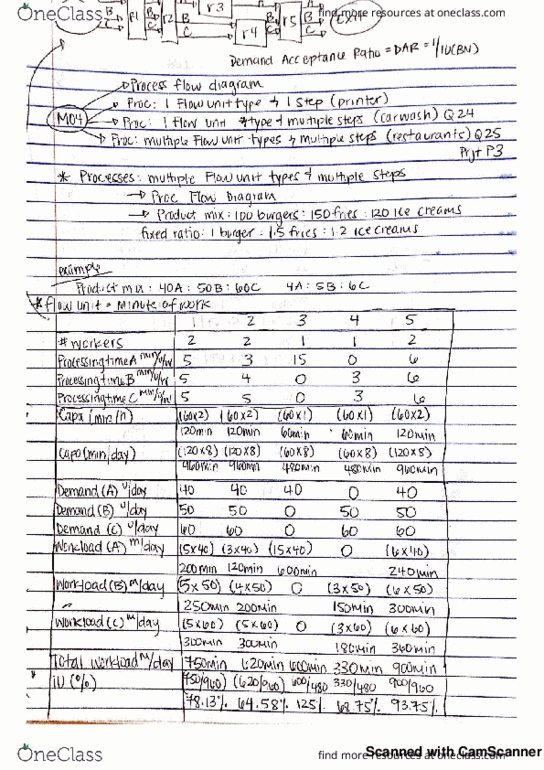 OneClass
find more resources at oneclass.com
B r1 B r2 r3 r5 B
C C r4 C C
Demand Acceptance Ratio = DAR = 1/IU(BN)
Process flow diagram
Proc: 1 Flow unit type & 1 step (printer)
M04
Proc: 1 flow unit type & multiple steps (carwash) Q24
Proc: multiple Flow unit types & multiple steps (restaurants) Q25
Prjt P3
* Processes: multiple Flow unit types & multiple steps
→ Proc Flow Diagram
→ Product mix: 100 burgers: 150 fries: 120 ice creams
fixed ratio: 1 burger: 1.5 fries: 1.2 ice creams
example
Product mix: 40A: 50B: 60C 4A: 5B: 6C
* flow unit = minute of work
1 2 3 4 5
# workers 2 2 1 1 2
Processing time A min/u/w 5 3 15 0 6
Processing time B min/u/w 5 4 0 3 6
Processing time C min/u/w 5 5 0 3 6
Capa (min/h) (60x2) (60x2) (60x1) (60x1) (60x2)
120min 120min 60min 60min 120min
Capa (min/day) (120x8) (120x8) (60x8) (60x8) (120x8)
960min 960min 480min 480min 960min
Demand (A) u/day 40 40 40 0 40
Demand (B) u/day 50 50 0 50 50
Demand (C) u/day 60 60 0 60 60
Workload (A) m/day (5x40) (3x40) (15x40) 0 (6x40)
200min 120min 600min 240min
Workload (B) m/day (5x50) (4x50) 0 (3x50) (6x50)
250min 200min 150min 300min
Workload (C) m/day (5x60) (5x60) 0 (3x60) (6x60)
300min 300min 180min 360min
Total Workload m/day 750min 620min 600min 330min 900min
* IU (%) (750/960) (620/960) 600/480 330/480 900/960
78.13% 64.58% 125% 68.75% 93.75%
Scanned with CamScanner
OneClass
find more resources at oneclass.com